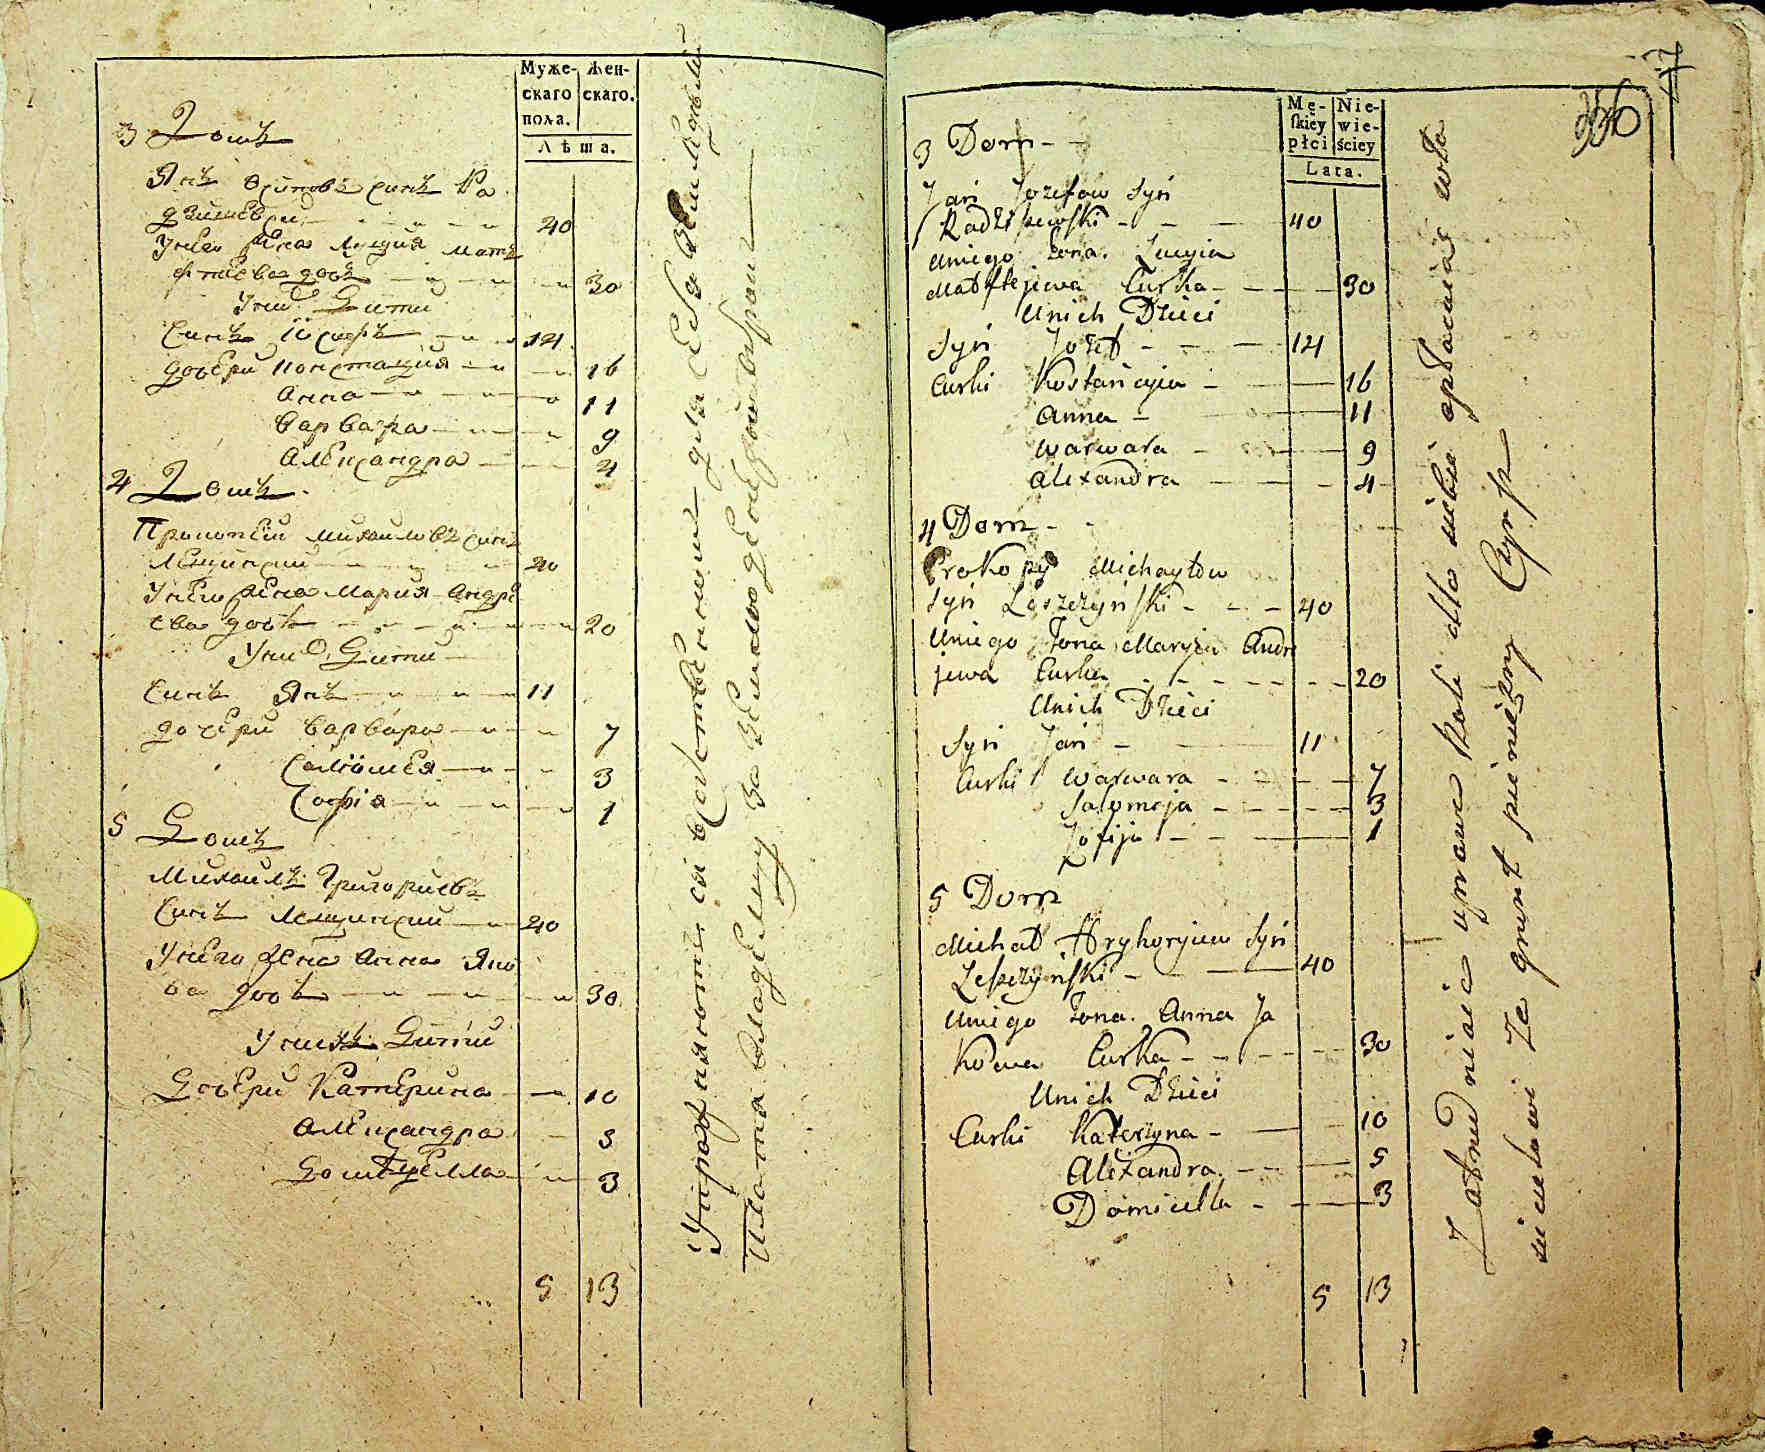 Муже-
скаго
пола.
Жен-
скаго.
Лѣта.
3 Домъ
Янъ Осиповъ сынъ Ра
дзишев 40
Унево жена Люция Мате
ева дочь 30
Уних Дети
Сынъ Іосифъ 14
дочери Констанция 16
Анна 11
Варвара 9
Александра 4
4 Домъ
Прокопей Михаиловъ сынъ
Лещинский 40
Унево жена Мария Андре
ева дочь 20
Уних Дети
Сынъ Янъ 11
дочери Варвара 7
Саломея 3
Софія 1
5 Домъ
Михаилъ Григориевъ
Сынъ Лещинский 40
Унево жена Анна Яко
ва дочь 30
Унихъ Дети
Дочери Катерина 10
Александра 5
Домицелла 3
5 13
Упражняются въ для себя
Плота владелцу за землю
17
356
Mę-
skiey
płci
Nie-
wie-
ściey
Lata.
3 Dom
Jan Jozefow Syn
Radziszewski 40
Uniego Zona. Lucyia
Matfiejewa Curka 30
Unich Dzieci
Syn Jozef 14
Curki Kostancyia 16
Anna 11
Warwara 9
Alexandra 4
4 Dom
Prokopy Michayłow
Syn Leszczyński 40
Uniego Zona Maryia Andre
jewa Curka 20
Unich Dzieci
Syn Jan 11
Curki Warwara 7
Salomeja 3
Zofija 1
5 Dom
Michał Hryhoryiew Syn
Leszczyński 40
Uniego Zona. Anna Ja
kowa Curka 30
Unich Dzieci
Curki Katerzyna 10
Alexandra 5
Domicella 3
5 13
Zatrudniaie uprawe Roli dla siebie opłacaias wła
scicielowi Ze grunt pieniężny Czynsz